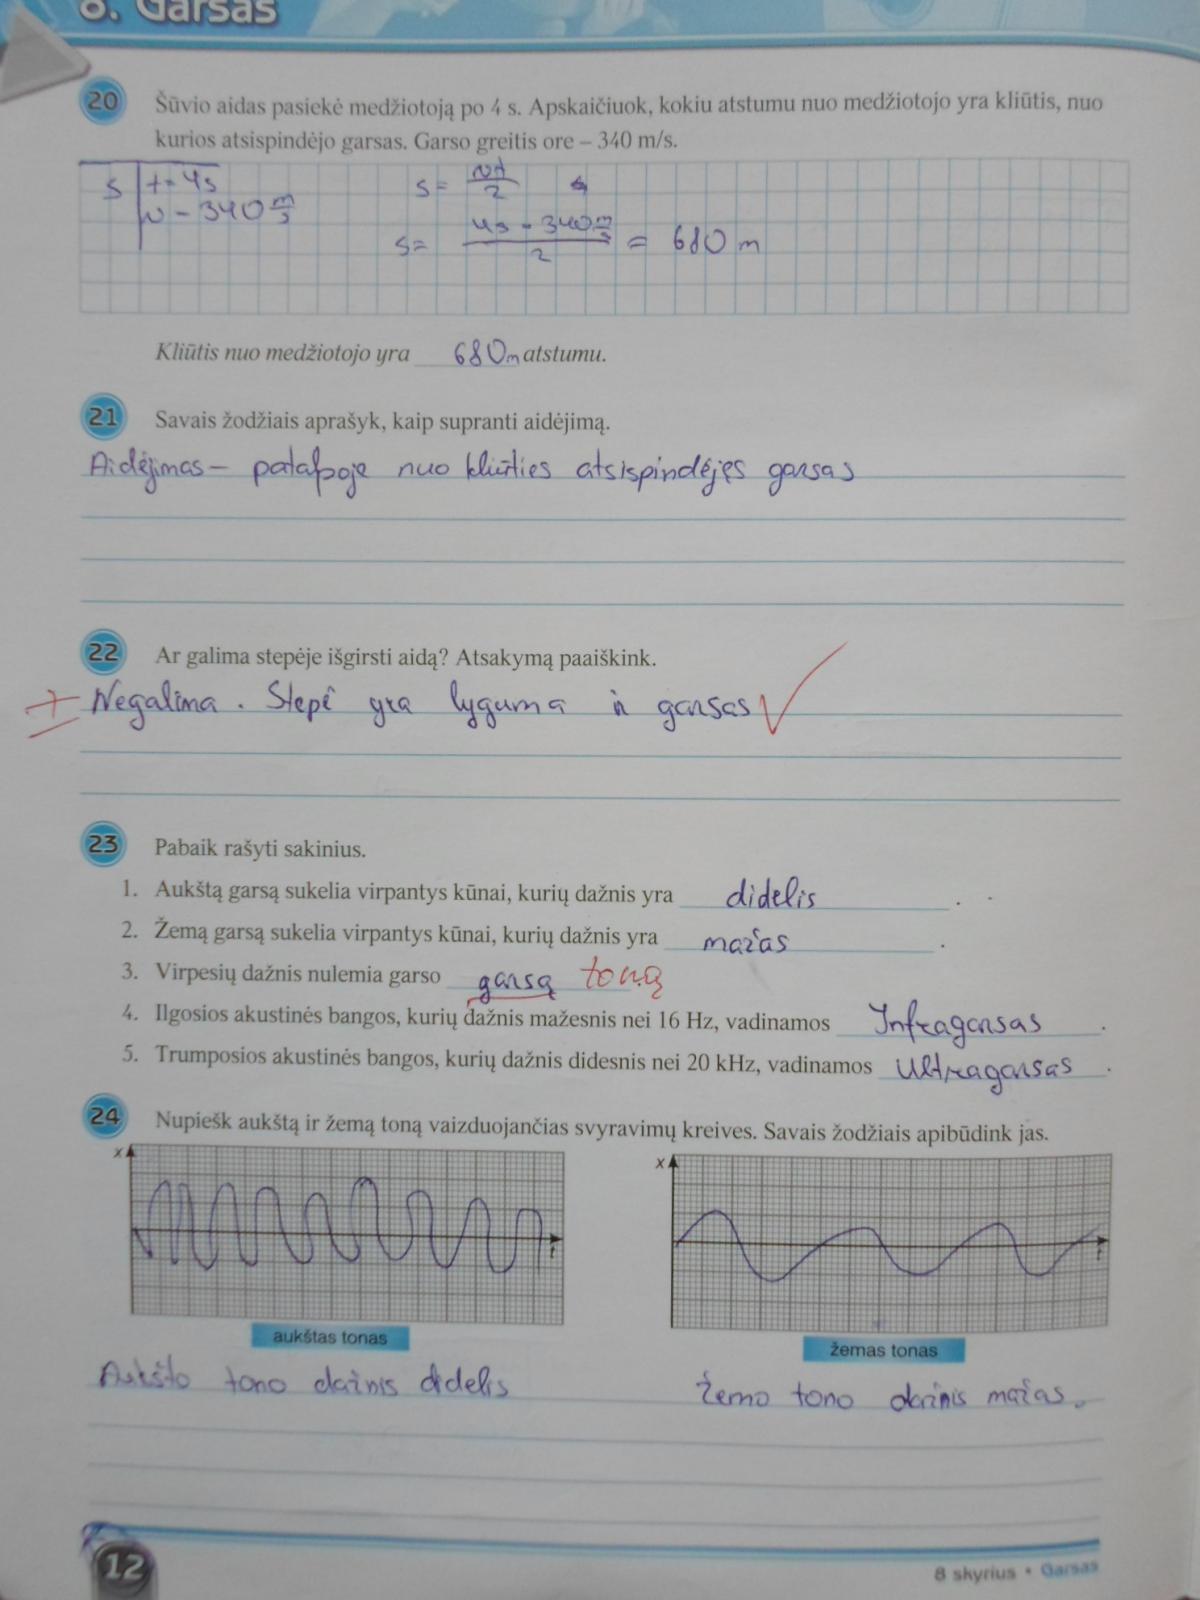 8. Garsas
20 Šūvio aidas pasiekė medžiotoją po 4 s. Apskaičiuok, kokiu atstumu nuo medžiotojo yra kliūtis, nuo
kurios atsispindėjo garsas. Garso greitis ore – 340 m/s.
s t = 4s s = vt/2
v – 340 m/s
s = 4s · 340 m/s / 2 = 680 m
Kliūtis nuo medžiotojo yra 680m atstumu.
21 Savais žodžiais aprašyk, kaip supranti aidėjimą.
Aidėjimas – patalpoje nuo kliūties atsispindėjęs garsas
22 Ar galima stepėje išgirsti aidą? Atsakymą paaiškink.
Negalima. Stepė yra lyguma ir garsas
23 Pabaik rašyti sakinius.
1. Aukštą garsą sukelia virpantys kūnai, kurių dažnis yra didelis .
2. Žemą garsą sukelia virpantys kūnai, kurių dažnis yra mažas .
3. Virpesių dažnis nulemia garso garsą toną
4. Ilgosios akustinės bangos, kurių dažnis mažesnis nei 16 Hz, vadinamos Infragarsas .
5. Trumposios akustinės bangos, kurių dažnis didesnis nei 20 kHz, vadinamos Ultragarsas .
24 Nupiešk aukštą ir žemą toną vaizduojančias svyravimų kreives. Savais žodžiais apibūdink jas.
x x
t t
aukštas tonas žemas tonas
Aukšto tono dažnis didelis Žemo tono dažnis mažas.
12 8 skyrius • Garsas